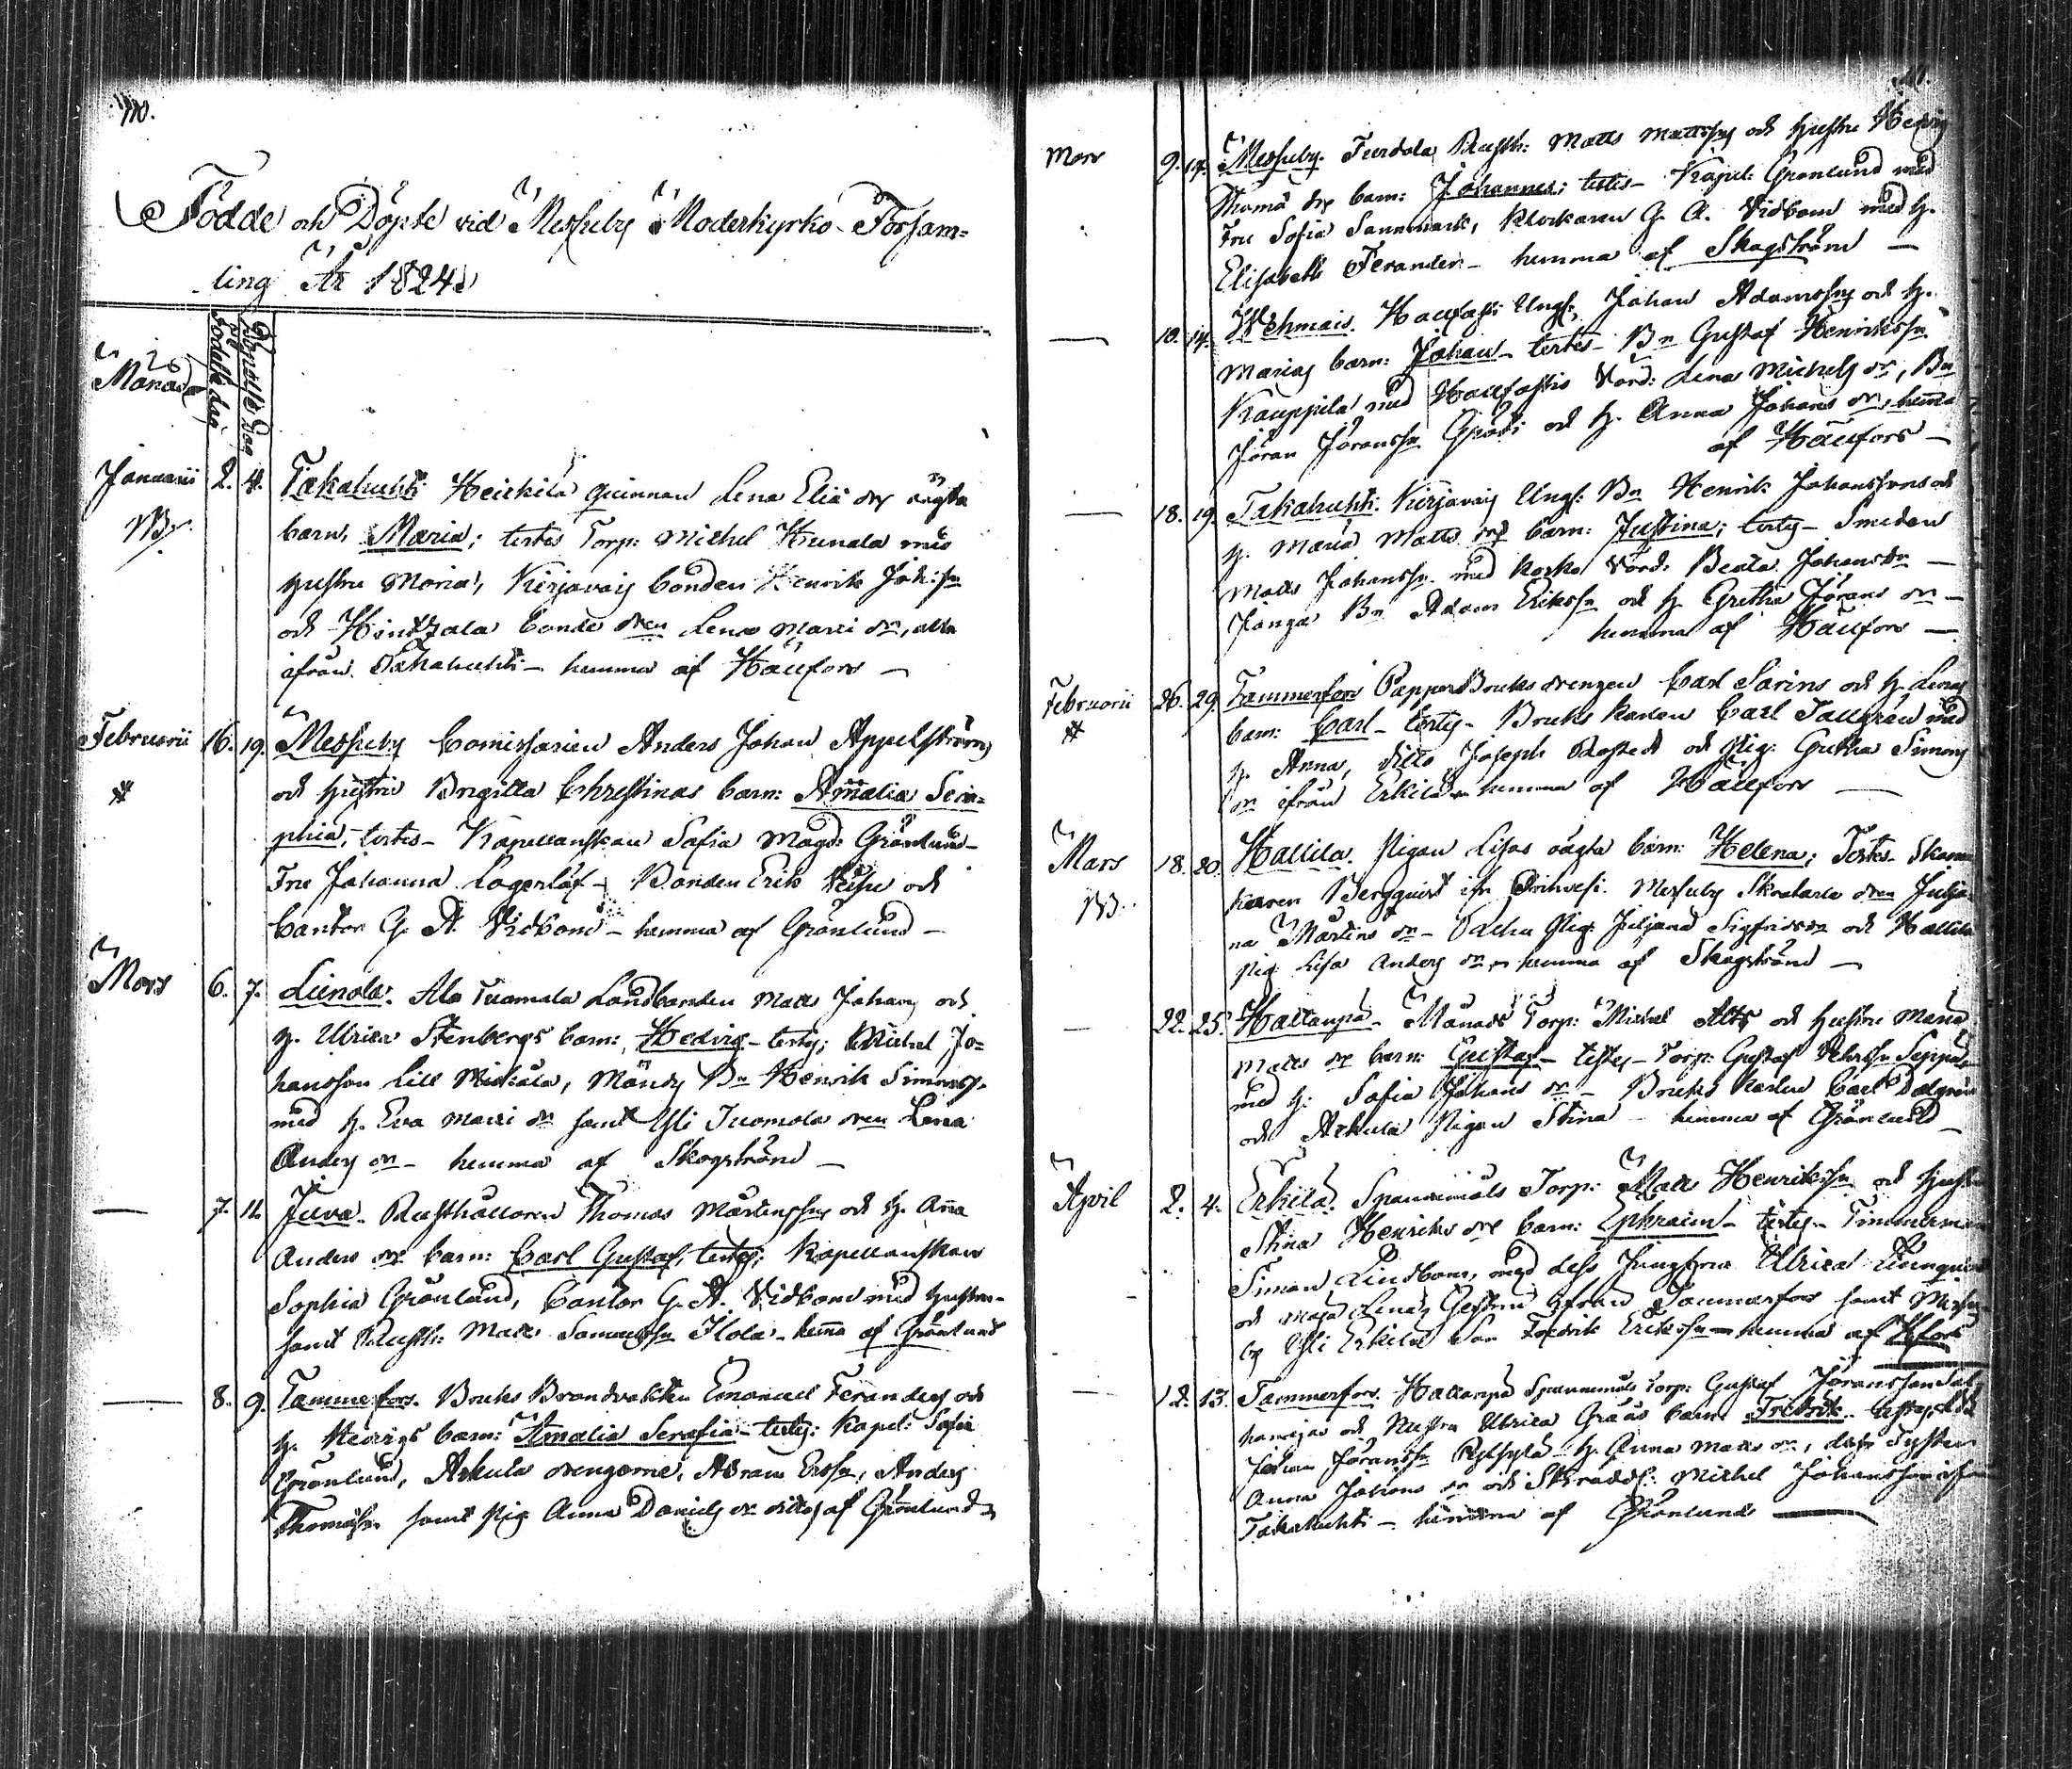 Födde och Döpte vid Messuby Moderkyrko-Försam=
ling År 1824.
Månad
Födelse dag
Döpelse Dag
Januarii 2. 4. Takahuhti Heickilä quinnan Lena Eliæ dr oägta
NB. barn, Maria; testes Torp: Michel Kunala med
hustru Maria, Kirjavais bonden Henrik Johsn
och Hintzala bonde dren Lena Matti dr, alla
ifrån Takahuhti – hemma af Häufors –
Februarii 16. 19. Messuby Comissarien Anders Johan Appelström
och hustru Brigitta Christinas barn: Amalia Sera=
phia, testes – Kapellanskan Sofia Magd: Grönlund –
Fru Johanna Lagerlöf – Bonden Erik och
Cantor G. A. Vidbom – hemma af Grönlund –
Mars 6. 7. Liinola. Ala Tuomala Landbonden Matts Johans och
h. Ulrica Stenbergs barn: Hedvig – testes; Michel Jo=
hansson Lill Mickola, Bn Henrik Simons
med h. Eva Matti dr samt Yli Tuomola dren Lena
Anders dr – hemma af Skogström –
— 7. 11. Juva. Rusthållaren Thomas Mårtenssns och h. Anna
Anders dr barn: Carl Gustaf, testes; Kapellanskan
Sophia Grönlund, Cantor G. A. Vidbom med hustru
samt Rusth: Matts Samuelssn Ilola – hemma af Grönlund
— 8. 9. Tammerfors. Bruks Brandvakten Emanuel Feranders och
h. Hedvigs barn: Amalia Serafia – testes: Kapel: Sofia
Grönlund, Arkula drengarne, Abram Erssn, Anders
Thomassn samt Pig Anna Daniels dr af Grönlund –
Mars 9. 14. Messuby. Turdola Rusth: Matts Mattssns och hustru Hedvig
Thomæ drs barn: Johannes; testes – Kapel: Grönlund med
Fru Sofia Sannmark, Klockaren G. A. Vidbom med h.
Elisabeth Ferander – hemma af Skogström —
— 10. 14. Wehmais. Haufasti Ungk: Johan Adamssns och h.
Marias barn: Johan – testes – Bn Gustaf Henrikssn
Kauppila med Haufastis Värd: Lena Michels dr, Bn
Jöran Jöranssn och h. Anna Johans dr, hemma
af Häufors –
— 18. 19. Takahuhti. Kirjavais Ungk: Bn Henrik Johanssons och
h. Maria Matts drs barn: Justina; testes – Smeden
Matts Johanssn med Värd: Beata Johansdr –
Janga Bn Adam Erikssn och h. Gretha Jörans dr –
hemma af Häufors —
Februarii 26. 29. Tammerfors PappersBruks drengen Carl Sarins och h. Lenas
barn: Carl – testes – Bruks karlen Carl Tallgren med
h. Anna, ditto Joseph och Pig: Gretha Simons
dr ifrån Erkilä – hemma af Häufors —
Mars 18. 20. Hallila. Pigan Lisas oägta barn: Helena; Testes –
NB. karen Bergquist ifr Orihvesi. Messuby Skratarla dren Julja-
na Mårtens dr – Pig: Juljana Sigfridsdr och Hallila
Pig Lisa Anders dr – hemma af Skogström —
— 22. 25. Hallanpä – Månads Torp: Michel och hustru Maria
Matts drs barn: Gustaf – testes – Torp: Gustaf Seppä
med h. Sofia Johans dr – Bruks karlen Carl Dalgren
och Arkula Pigan Stina – hemma af Grönlund –
April 2. 4. Erkilä. Spannmåls Torp: Matts Henrikssn och hustru
Stina Henriks drs barn: Ephraim – testes – Timmerman
Simon Lindbom, med dess Jungfru Ulrica
och Maja Lena ifrån Tammerfors samt Messu-
by Yli Erkilä Son Fredrik Erikssn – hemma af Hfors
— 12. 13. Tammerfors. Hallanpä Spannmåls Torp: Gustaf Jöransson
och Hustru Ulrica Graas barn: Fredrik – testes,
Johan Jöranssn h. Anna Matts dr, dess Syster
Anna Johans dr och Skradd: Michel Johansson ifrån
Takahuhti – hemma af Grönlund —